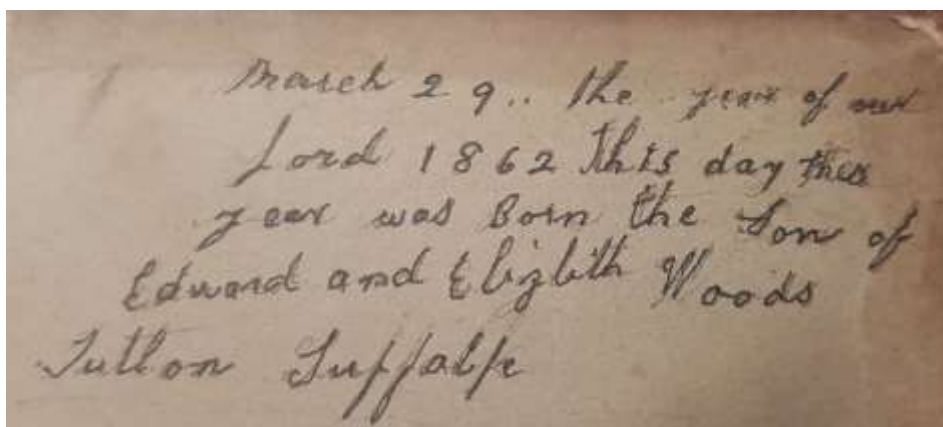 March 29.. the year of our
Lord 1862 This day this
year was Born the Son of
Edward and Elizbith Woods
Sutton Suffalfe